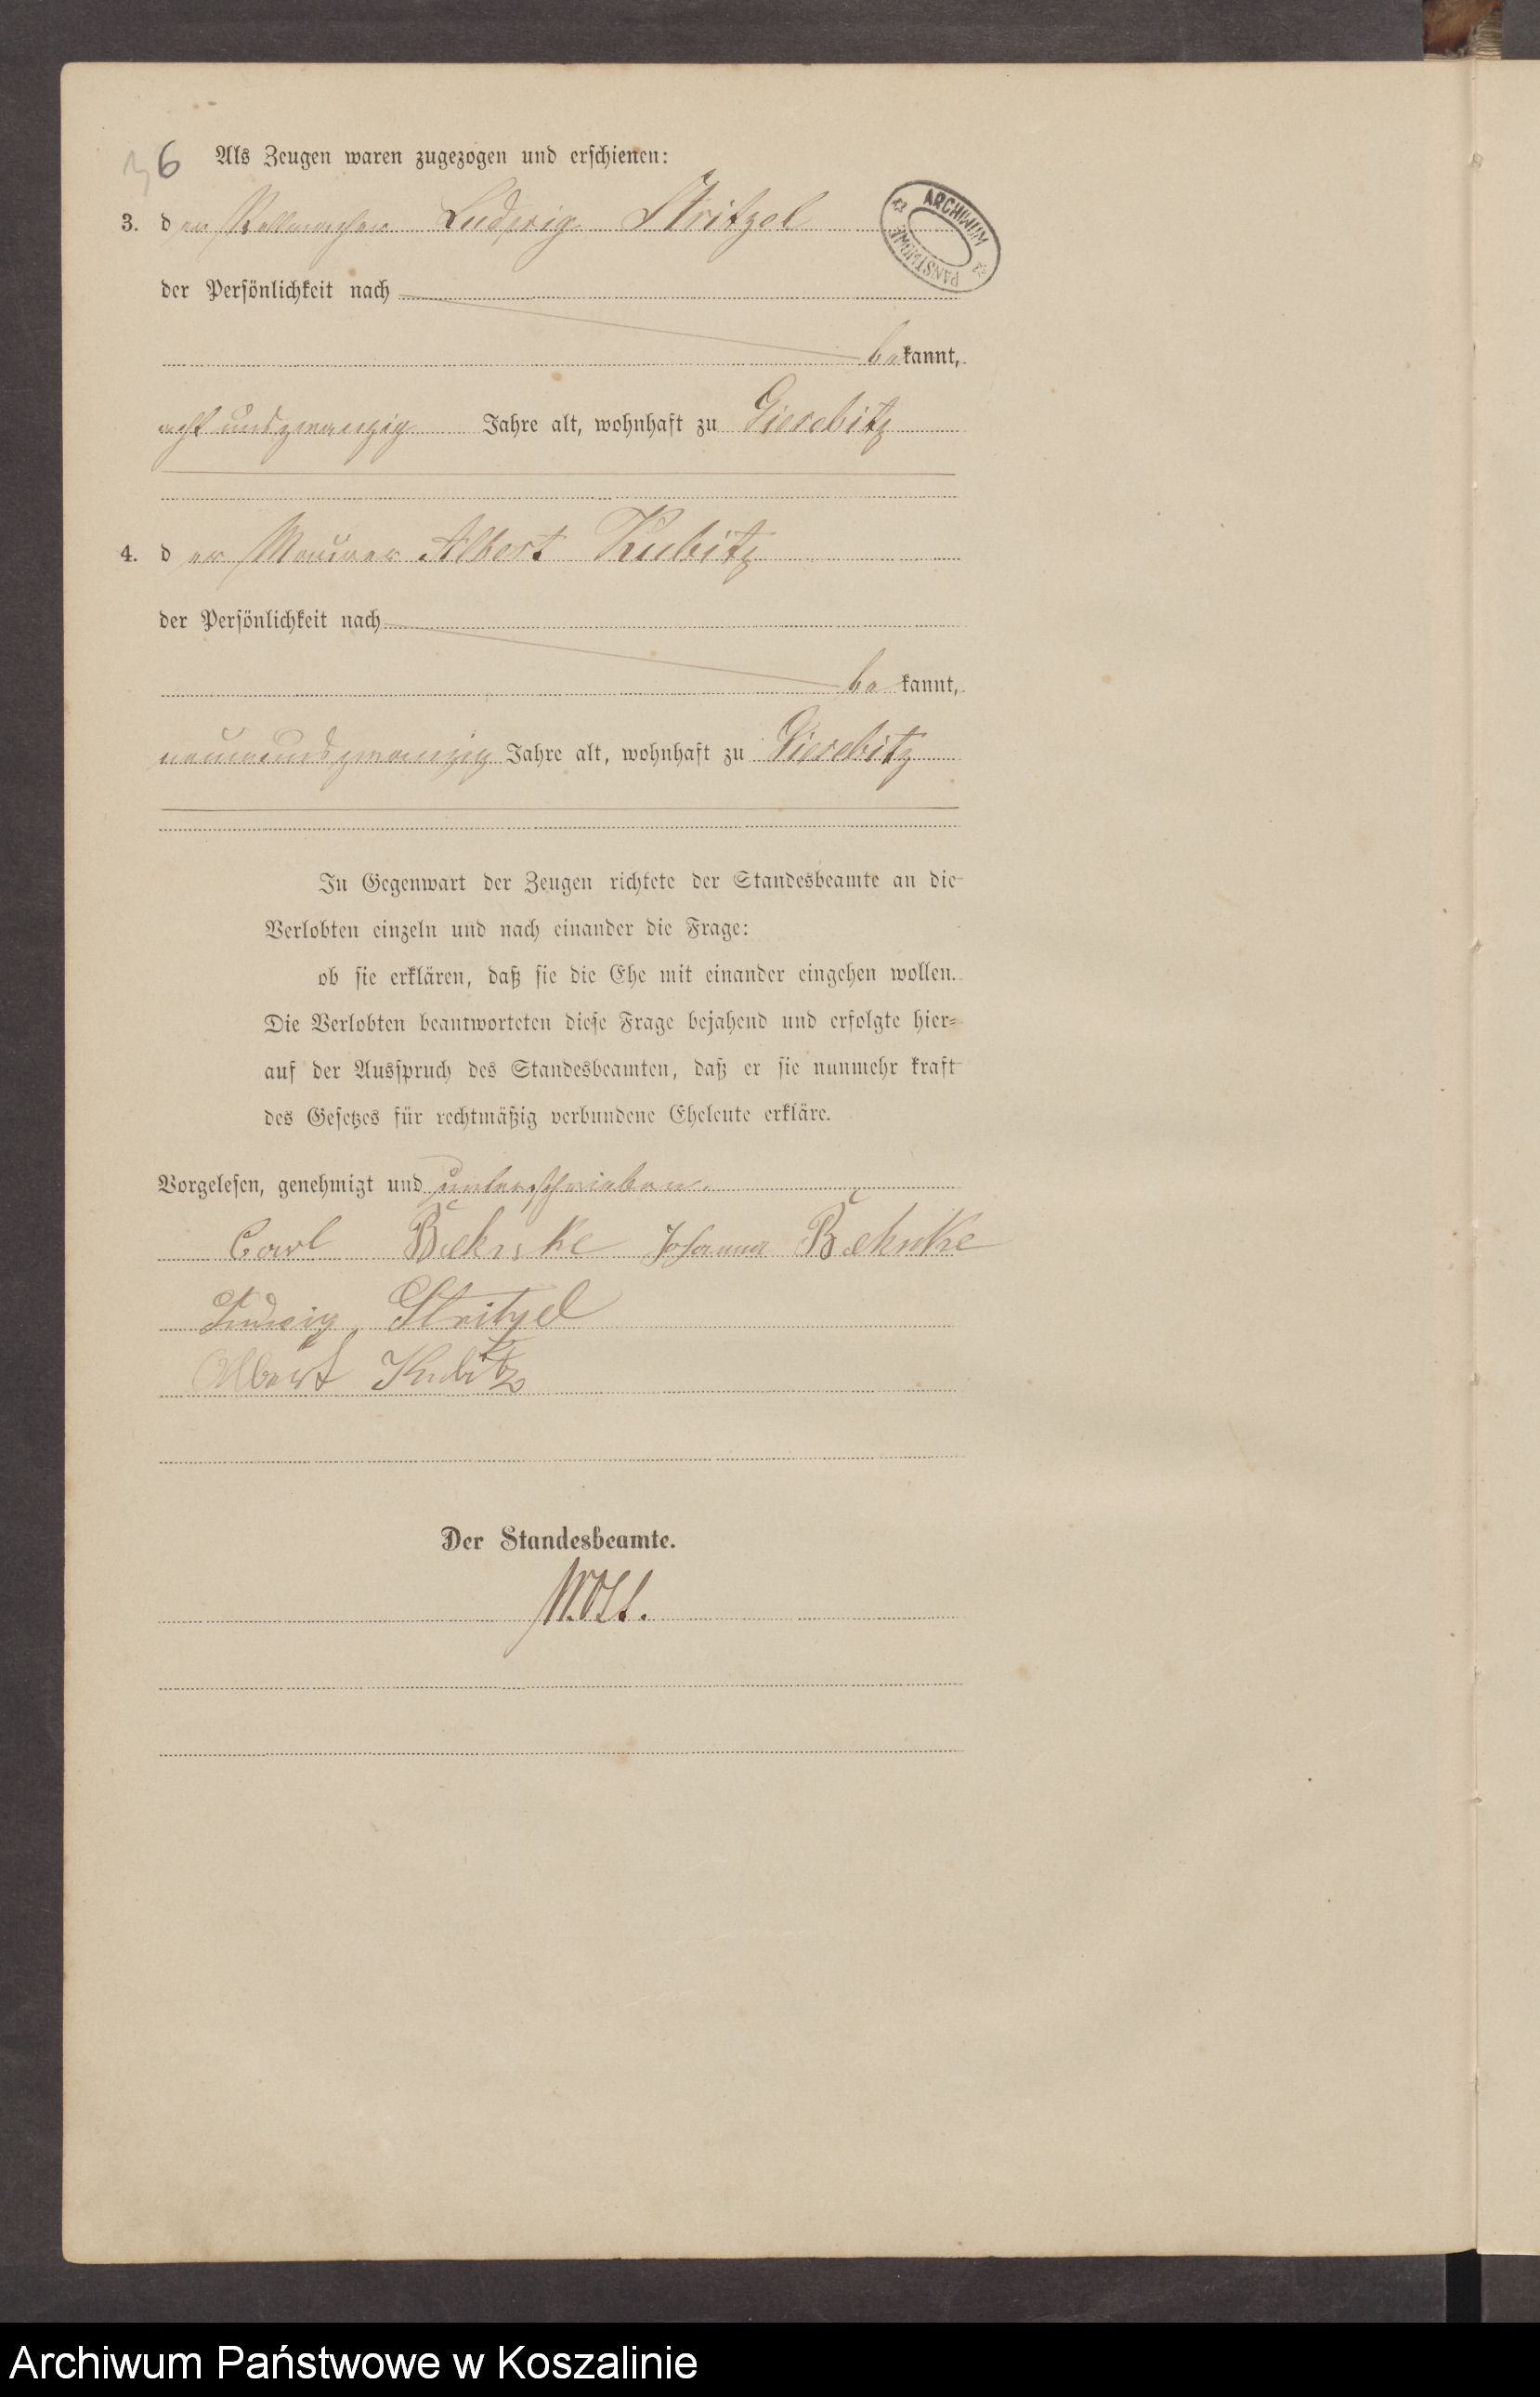 6 Als Zeugen waren zugezogen und erschienen:
ARCHIWUM PAŃSTWOWE
3. der Stellmacher Ludwig Stritzel
der Persönlichkeit nach
bekannt,
acht und zwanzig Jahre alt, wohnhaft zu Gierebitz
4. der Maurer Albert Kubitz
der Persönlichkeit nach
bekannt,
neunundzwanzig Jahre alt, wohnhaft zu Gierebitz
In Gegenwart der Zeugen richtete der Standesbeamte an die
Verlobten einzeln und nach einander die Frage:
ob sie erklären, daß sie die Ehe mit einander eingehen wollen.
Die Verlobten beantworteten diese Frage bejahend und erfolgte hier-
auf der Ausspruch des Standesbeamten, daß er sie nunmehr kraft
des Gesetzes für rechtmäßig verbundene Eheleute erkläre.
Vorgelesen, genehmigt und unterschrieben.
Carl Johanna
Ludwig Stritzel
Albert Kubitz
Der Standesbeamte.
Archiwum Państwowe w Koszalinie